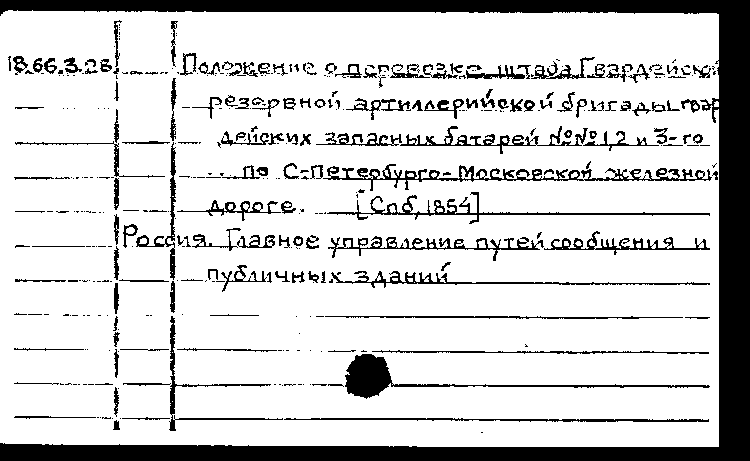 18.66.3.28 Положение о перевозке штаба Гвардейской
резервной артиллерийской бригады гвар
дейских запасных батарей №№ 1,2 и 3-го
... по С-Петербурго-Московской железной
дороге. [Спб, 1854]
Россия. Главное управление путей сообщения и
публичных зданий